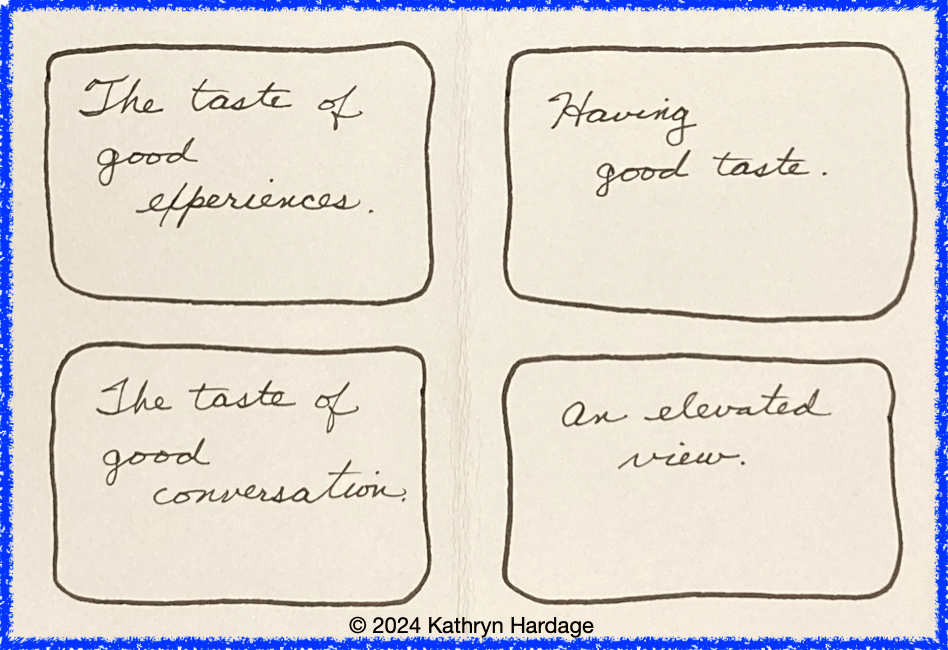 The taste of
good
experiences.
Having
good taste.
The taste of
good
conversation.
An elevated
view.
© 2024 Kathryn Hardage